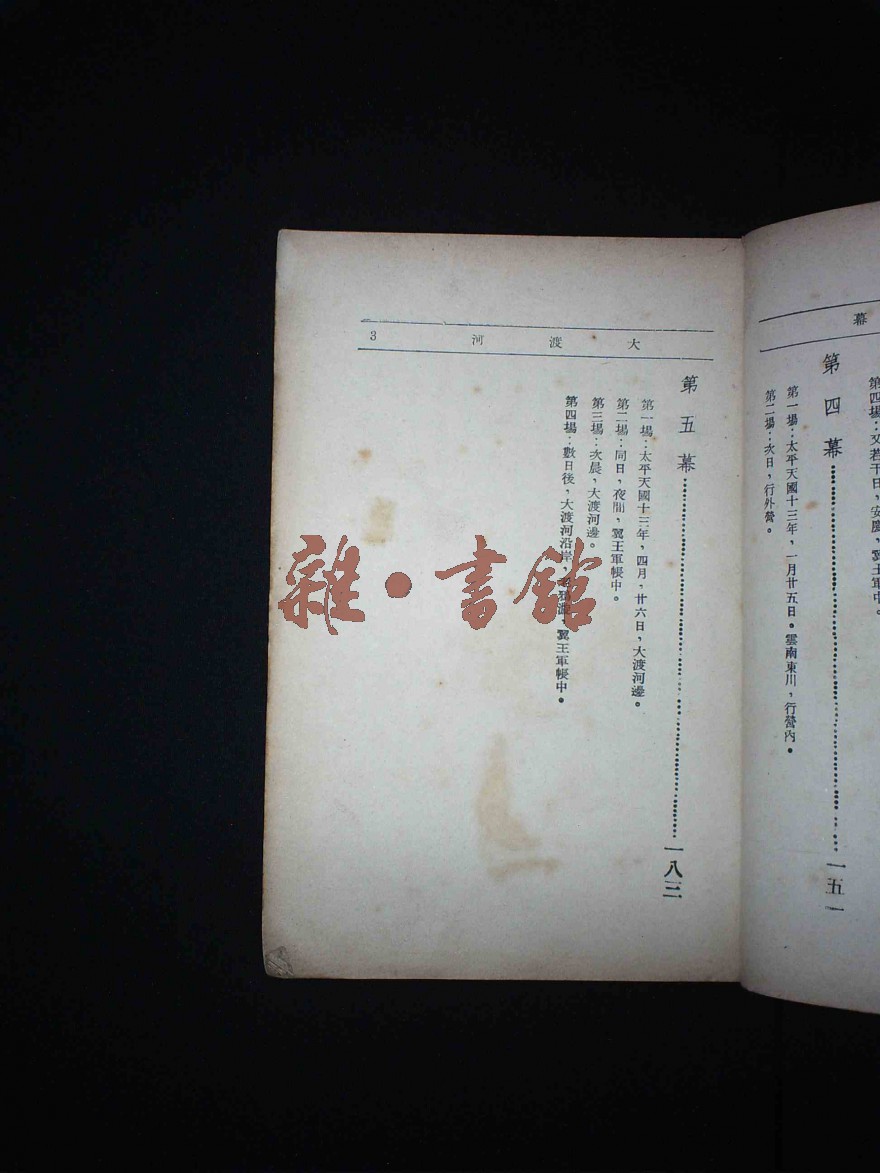 幕
第四場：又若干日，安慶，翼王軍中。
第四幕 一五一
第一場：太平天國十三年，一月廿五日。雲南東川，行營內。
第二場：次日，行外營。
大渡河 3
第五幕 一八三
第一場：太平天國十三年，四月，廿六日，大渡河邊。
第二場：同日，夜間，翼王軍帳中。
第三場：次晨，大渡河邊。
第四場：數日後，大渡河沿岸，老鴉漩，翼王軍帳中。
雜·書館